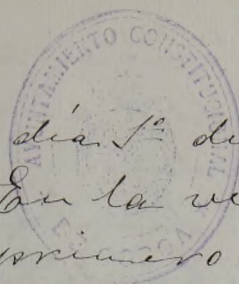 AYUNTAMIENTO CONSTITUCIONAL
día 1º de
En la vi
primero